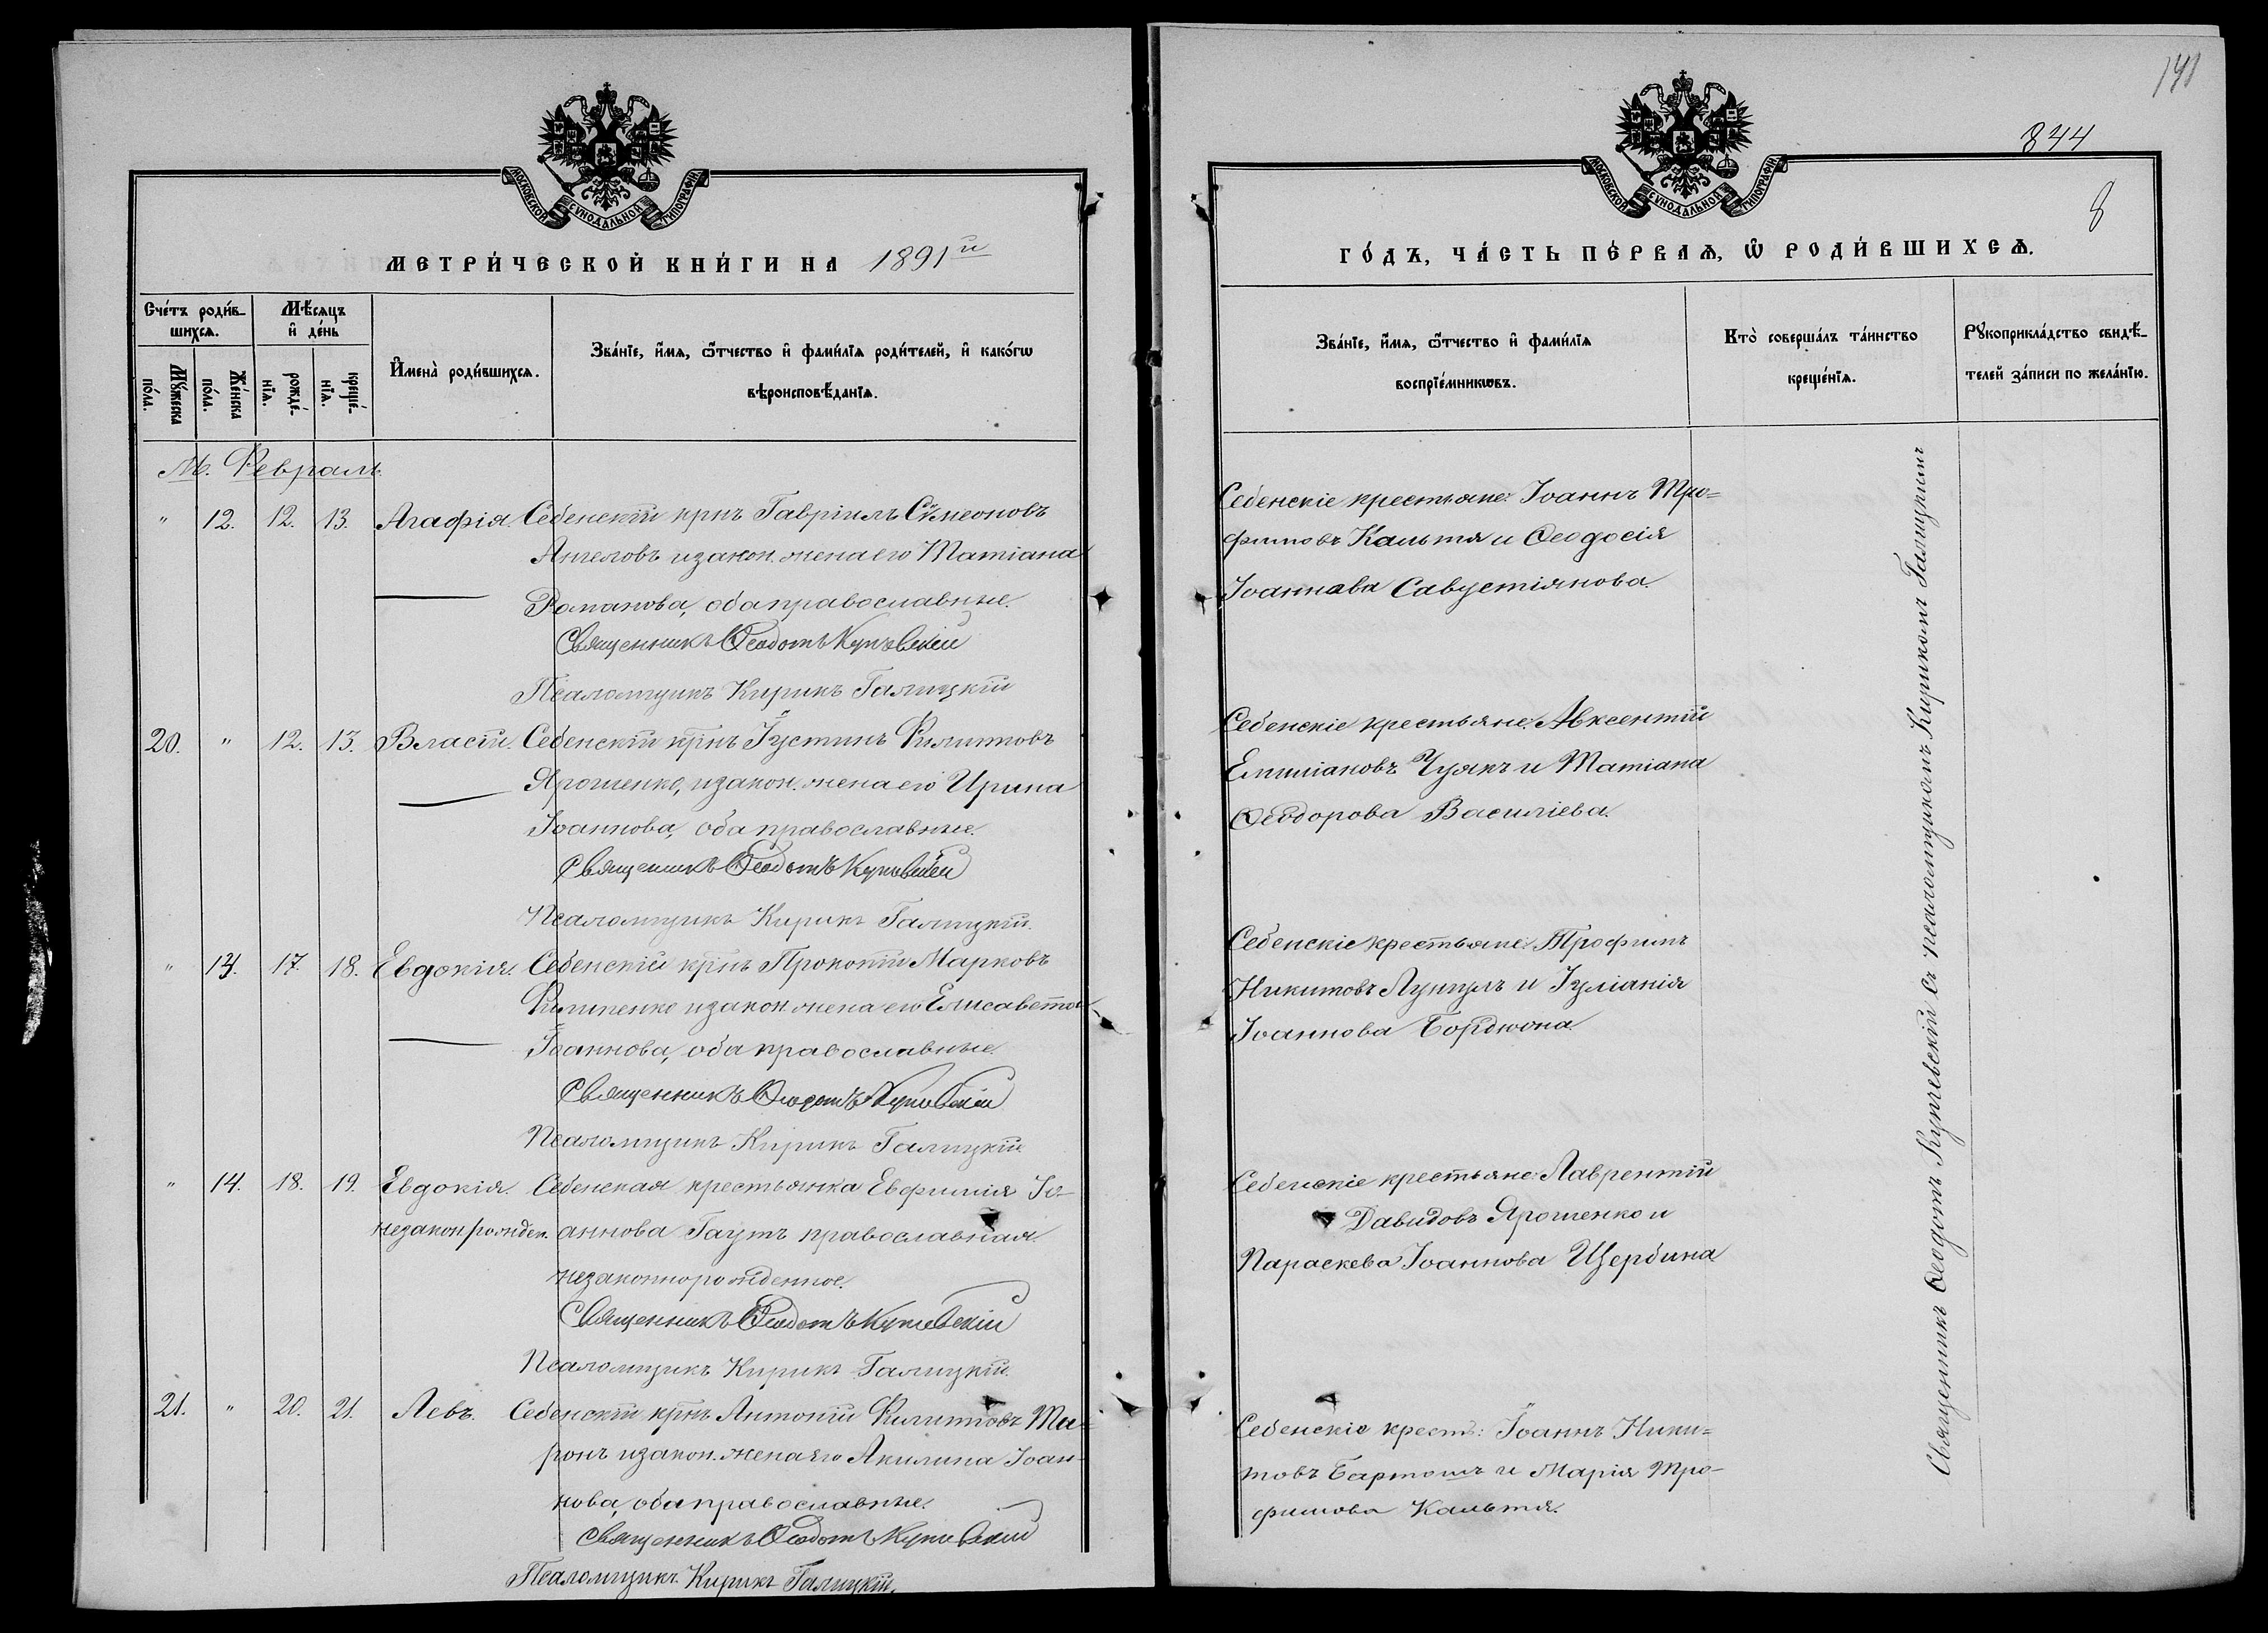 МОСКОВСКОЙ СѴНОДАЛЬНОЙ ТИПОГРАФІИ
МЕТРИ́ЧЕСКОЙ КНИ́ГИ НА 1891й
Сче́тъ роди́в-
шихсѧ.
Мѣ́сѧцъ
и҆ де́нь
Му́жеска
по́ла.
Же́нска
по́ла.
рожде́-
нїѧ.
креще́-
нїѧ.
И҆мена̀ роди́вшихсѧ.
Зва́нїе, и҆́мѧ, ѻ҆́тчество и҆ фами́лїѧ роди́телей, и҆ како́гѡ
вѣроисповѣ́данїѧ.
М. Февраль.
" 12. 12. 13. Агафія Себенскій крнъ Гавріилъ Симеоновъ
Ангеловъ и закон. жена его Татіана
Романова, оба православные.
Священникъ Ѳеодотъ Купчевскій
Псаломщикъ Кирикъ Галицкій
20. " 12. 13. Власій. Себенскій крнъ Іустинъ Филиповъ
Ярошенко, и закон. жена его Ирина
Іоаннова, оба православные.
Священникъ Ѳеодотъ Купчевскій
Псаломщикъ Кирикъ Галицкій.
" 13. 17. 18. Евдокія. Себенскій крнъ Прокопій Марковъ
Филипенко и закон. жена его Елисавета
Іоаннова, оба православные.
Священникъ Ѳеодотъ Купчевскій
Псаломщикъ Кирикъ Галицкій.
" 14. 18. 19. Евдокія. Себенская крестьянка Евфимія Іо-
незакон. рожден. аннова Гаутъ православная.
незаконнорожденное.
Священникъ Ѳеодотъ Купчевскій
Псаломщикъ Кирикъ Галицкій.
21. " 20. 21. Левъ. Себенскій крнъ Антоній Филиповъ Ми-
ронъ и закон. жена его Акилина Іоан-
нова, оба православные.
Священникъ Ѳеодотъ Купчевскій
Псаломщикъ Кирикъ Галицкій.
141
844
8
МОСКОВСКОЙ СѴНОДАЛЬНОЙ ТИПОГРАФІИ
ГО́ДЪ, ЧА́СТЬ ПЕ́РВАѦ, Ѡ҆ РОДИ́ВШИХСѦ.
Зва́нїе, и҆́мѧ, ѻ҆́тчество и҆ фами́лїѧ
воспрїе́мникѡвъ.
Кто̀ соверша́лъ та́инство
креще́нїѧ.
Рꙋкоприкла́дство свидѣ́-
телей за́писи по жела́нїю.
Себенскіе крестьяне: Іоаннъ Тро=
фимовъ Кальтя и Ѳеодосія
Іоаннова Савустіянова.
Себенскіе крестьяне: Авксентій
Емиліановъ Чуякъ и Татіана
Ѳеодорова Василіева.
Себенскіе крестьяне: Трофимъ
Никитовъ Лунгулъ и Іуліанія
Іоаннова Бордюона
Себенскіе крестьяне: Лаврентій
Давидовъ Ярошенко и
Параскева Іоаннова Щербина
Себенскіе крест: Іоаннъ Ники=
товъ Бартошъ и Марія Тро-
фимова Кальтя.
Священникъ Ѳеодотъ Купчевскій съ псаломщикомъ Кирикомъ Галицкимъ